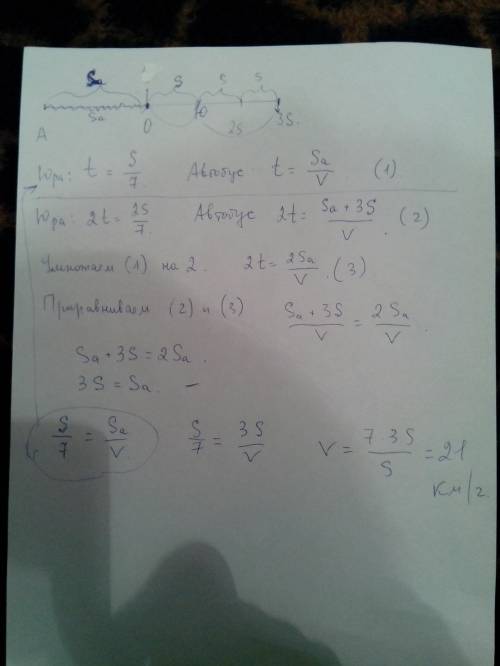 Sa S S S
Sa
A O Ю 2S 3S
Юра: t = S/7. Автобус t = Sa/V. (1)
Юра: 2t = 2S/7. Автобус 2t = Sa + 3S/V. (2)
Умножаем (1) на 2. 2t = 2Sa/V. (3)
Приравниваем (2) и (3) Sa + 3S/V = 2Sa/V.
Sa + 3S = 2Sa.
3S = Sa. –
S/7 = Sa/V. S/7 = 3S/V V = 7·3S/S = 21
км/г.